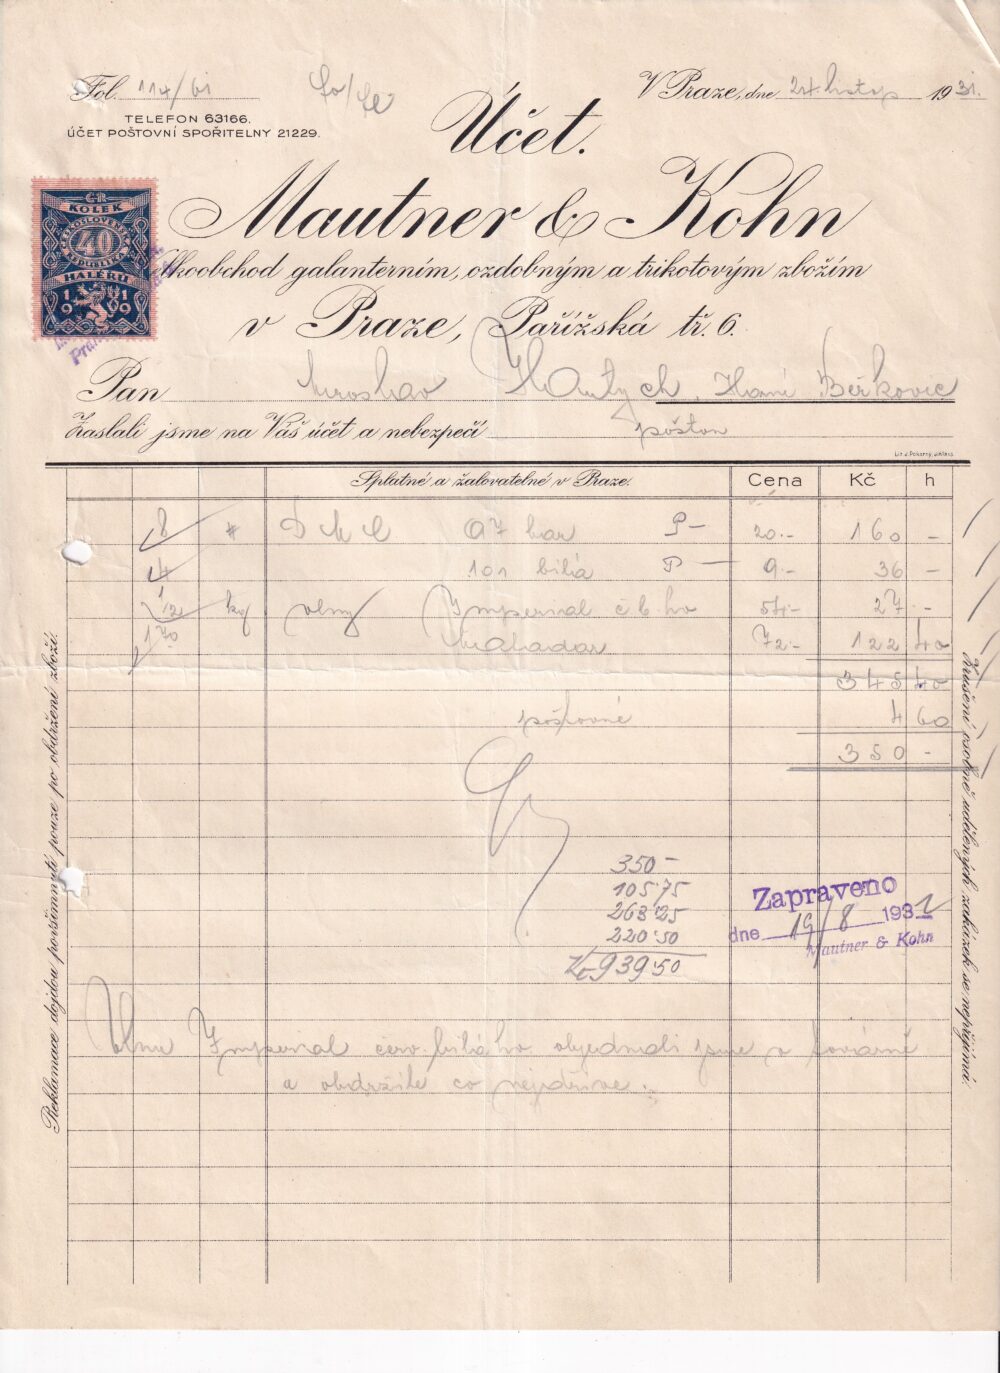 Fol. 114/61
V Praze, dne 24. listop 1931.
TELEFON 63166.
ÚČET POŠTOVNÍ SPOŘITELNY 21229.
Účet.
Mautner & Kohn
KOLEK
ČESKOSLOVENSKÁ REPUBLIKA
40
HALÉŘŮ
1919
Velkoobchod galanterním, ozdobným a trikotovým zbožím
v Praze, Pařížská tř. 6.
Pan Miroslav
Zaslali jsme na Váš účet a nebezpečí poštou
Splatné a žalovatelné v Praze. Cena Kč h
8 # D M C 97 bar P- 20.- 160 -
4 101 bílá P- 9.- 36 -
1/2 kg vlny Imperial č. b. ho 54.- 27 -
1.70 72.- 122 40
345 40
poštovné 4 60
350 -
350-
105.75
263.25
220.50
Kč 939.50
Zapraveno
dne 19/8 1932
Mautner & Kohn
Vlnu Imperial červ. bílého objednali jsme v továrně
a obdržíte co nejdříve.
Reklamace dojdou povšimnutí pouze po obdržení zboží.
Zrušení osobně udělených zakázek se nepřijímá.